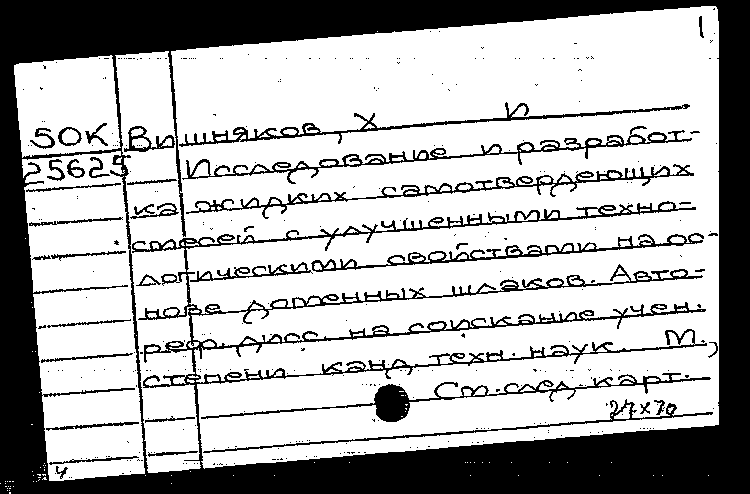 1
50К Вишняков, Х И
25625 Исследование и разработ-
ка жидких самотвердеющих
смесей с улучшенными техно-
логическими свойствами на ос-
нове доменных шлаков. Авто-
реф. дисс. на соискание учен.
степени канд. техн. наук. М.,
См. след. карт.
27х70
4